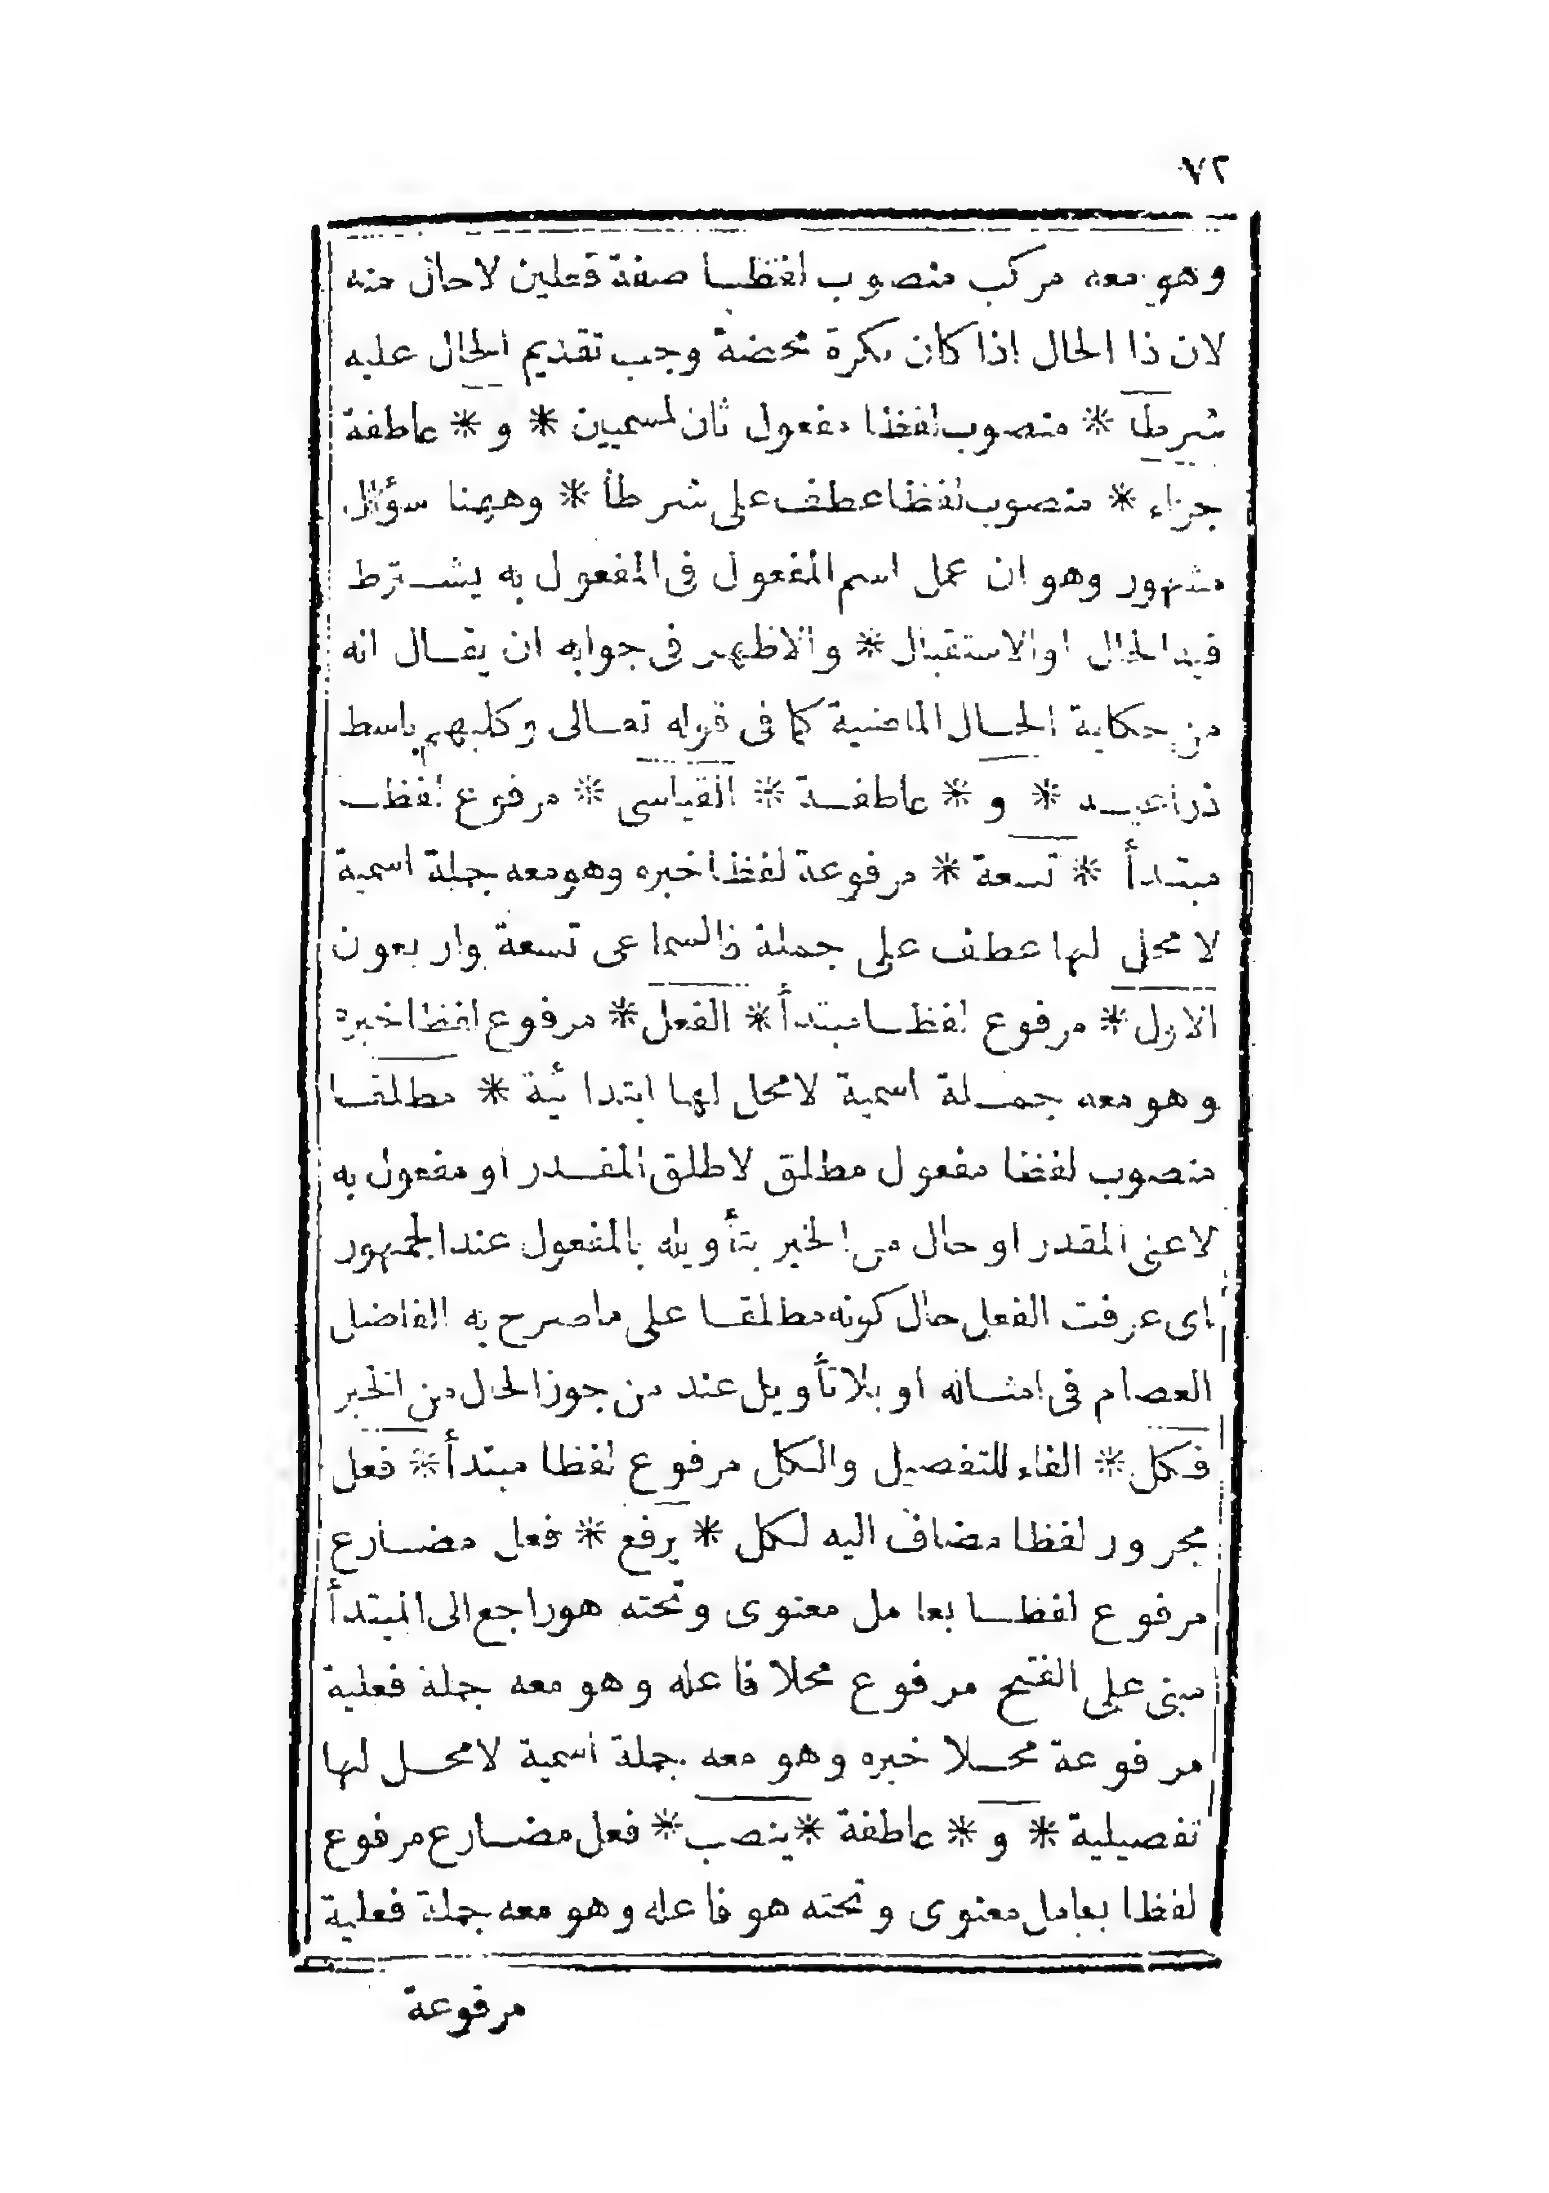 ٧٢
وهو معه مركب منصوب لفظا صفة فعلين لا حال منه
لان ذا الحال اذا كان نكرة محضة وجب تقديم الحال عليه
شرطا * منصوب لفظا مفعول ثان لمسميين * و * عاطفة
جزاء * منصوب لفظا عطف على شرطا * وههنا سؤال
مشهور وهو ان عمل اسم المفعول فى المفعول به يشترط
فيه الحال او الاستقبال * والاظهر فى جوابه ان يقال انه
من حكاية الحال الماضية كما فى قوله تعالى وكلبهم باسط
ذراعيه * و * عاطفة * القياسى * مرفوع لفظا
مبتدأ * تسعة * مرفوعة لفظا خبره وهو معه جملة اسمية
لا محل لها عطف على جملة فالسماعى تسعة واربعون
الاول * مرفوع لفظا مبتدأ * الفعل * مرفوع لفظا خبره
وهو معه جملة اسمية لا محل لها ابتدائية * مطلقا
منصوب لفظا مفعول مطلق لاطلق المقدر او مفعول به
لاعنى المقدر او حال من الخبر بتأويله بالمفعول عند الجمهور
اى عرفت الفعل حال كونه مطلقا على ما صرح به الفاضل
العصام فى امثاله او بلا تأويل عند من جوز الحال من الخبر
فكل * الفاء للتفصيل والكل مرفوع لفظا مبتدأ * فعل
مجرور لفظا مضاف اليه لكل * يرفع * فعل مضارع
مرفوع لفظا بعامل معنوى وتحته هو راجع الى المبتدأ
مبنى على الفتح مرفوع محلا فاعله وهو معه جملة فعلية
مرفوعة محلا خبره وهو معه جملة اسمية لا محل لها
تفصيلية * و * عاطفة * ينصب * فعل مضارع مرفوع
لفظا بعامل معنوى وتحته هو فاعله وهو معه جملة فعلية
مرفوعة